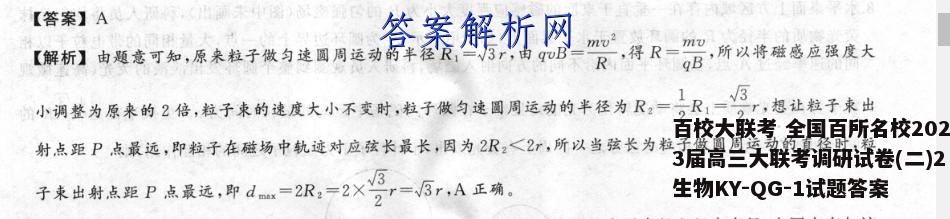 【答案】A
答案解析网
【解析】由题意可知,原来粒子做匀速圆周运动的半径R₁=√3r,由 qvB=mv²/R,得 R=mv/qB,所以将磁感应强度大
小调整为原来的 2 倍,粒子束的速度大小不变时,粒子做匀速圆周运动的半径为 R₂=1/2R₁=√3/2r,想让粒子束出
射点距 P 点最远,即粒子在磁场中轨迹对应弦长最长,因为 2R₂<2r,所以当弦长为粒子做圆周运动的直径时,粒
子束出射点距 P 点最远,即 dmax=2R₂=2×√3/2r=√3r,A 正确。
百校大联考 全国百所名校202
3届高三大联考调研试卷(二)2
生物KY-QG-1试题答案